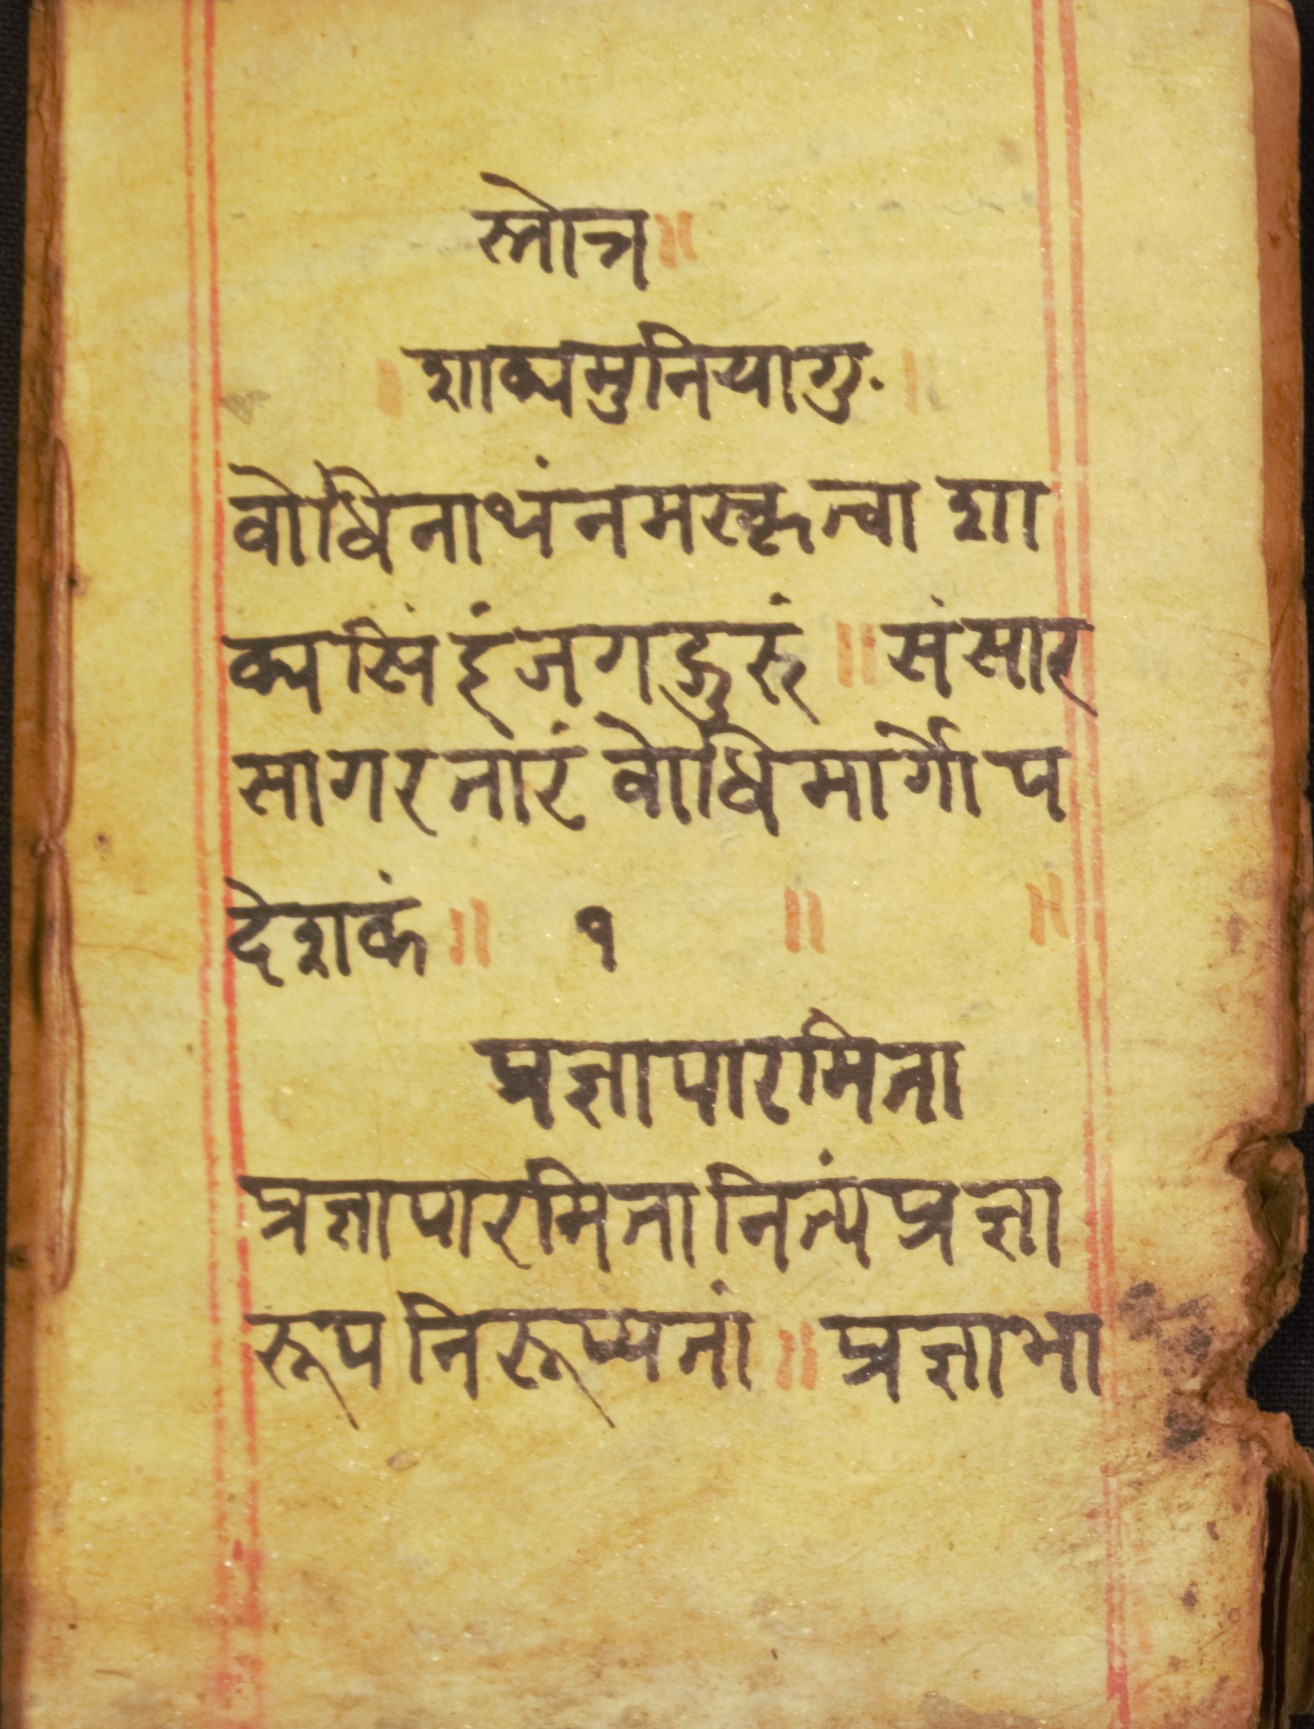 स्तोत्र॥
। शाक्यमुनियागु. ।
वोधिनाथंनमस्कृत्वा शा
क्यसिंहंजगद्गुरुं ॥ संसार
सागरतारं वोधिमार्गोप
देशकं ॥ १ ॥ ॥
प्रज्ञापारमिता
प्रज्ञापारमितानित्यंप्रज्ञा
रूपनिरूप्यतां ॥ प्रज्ञाभा